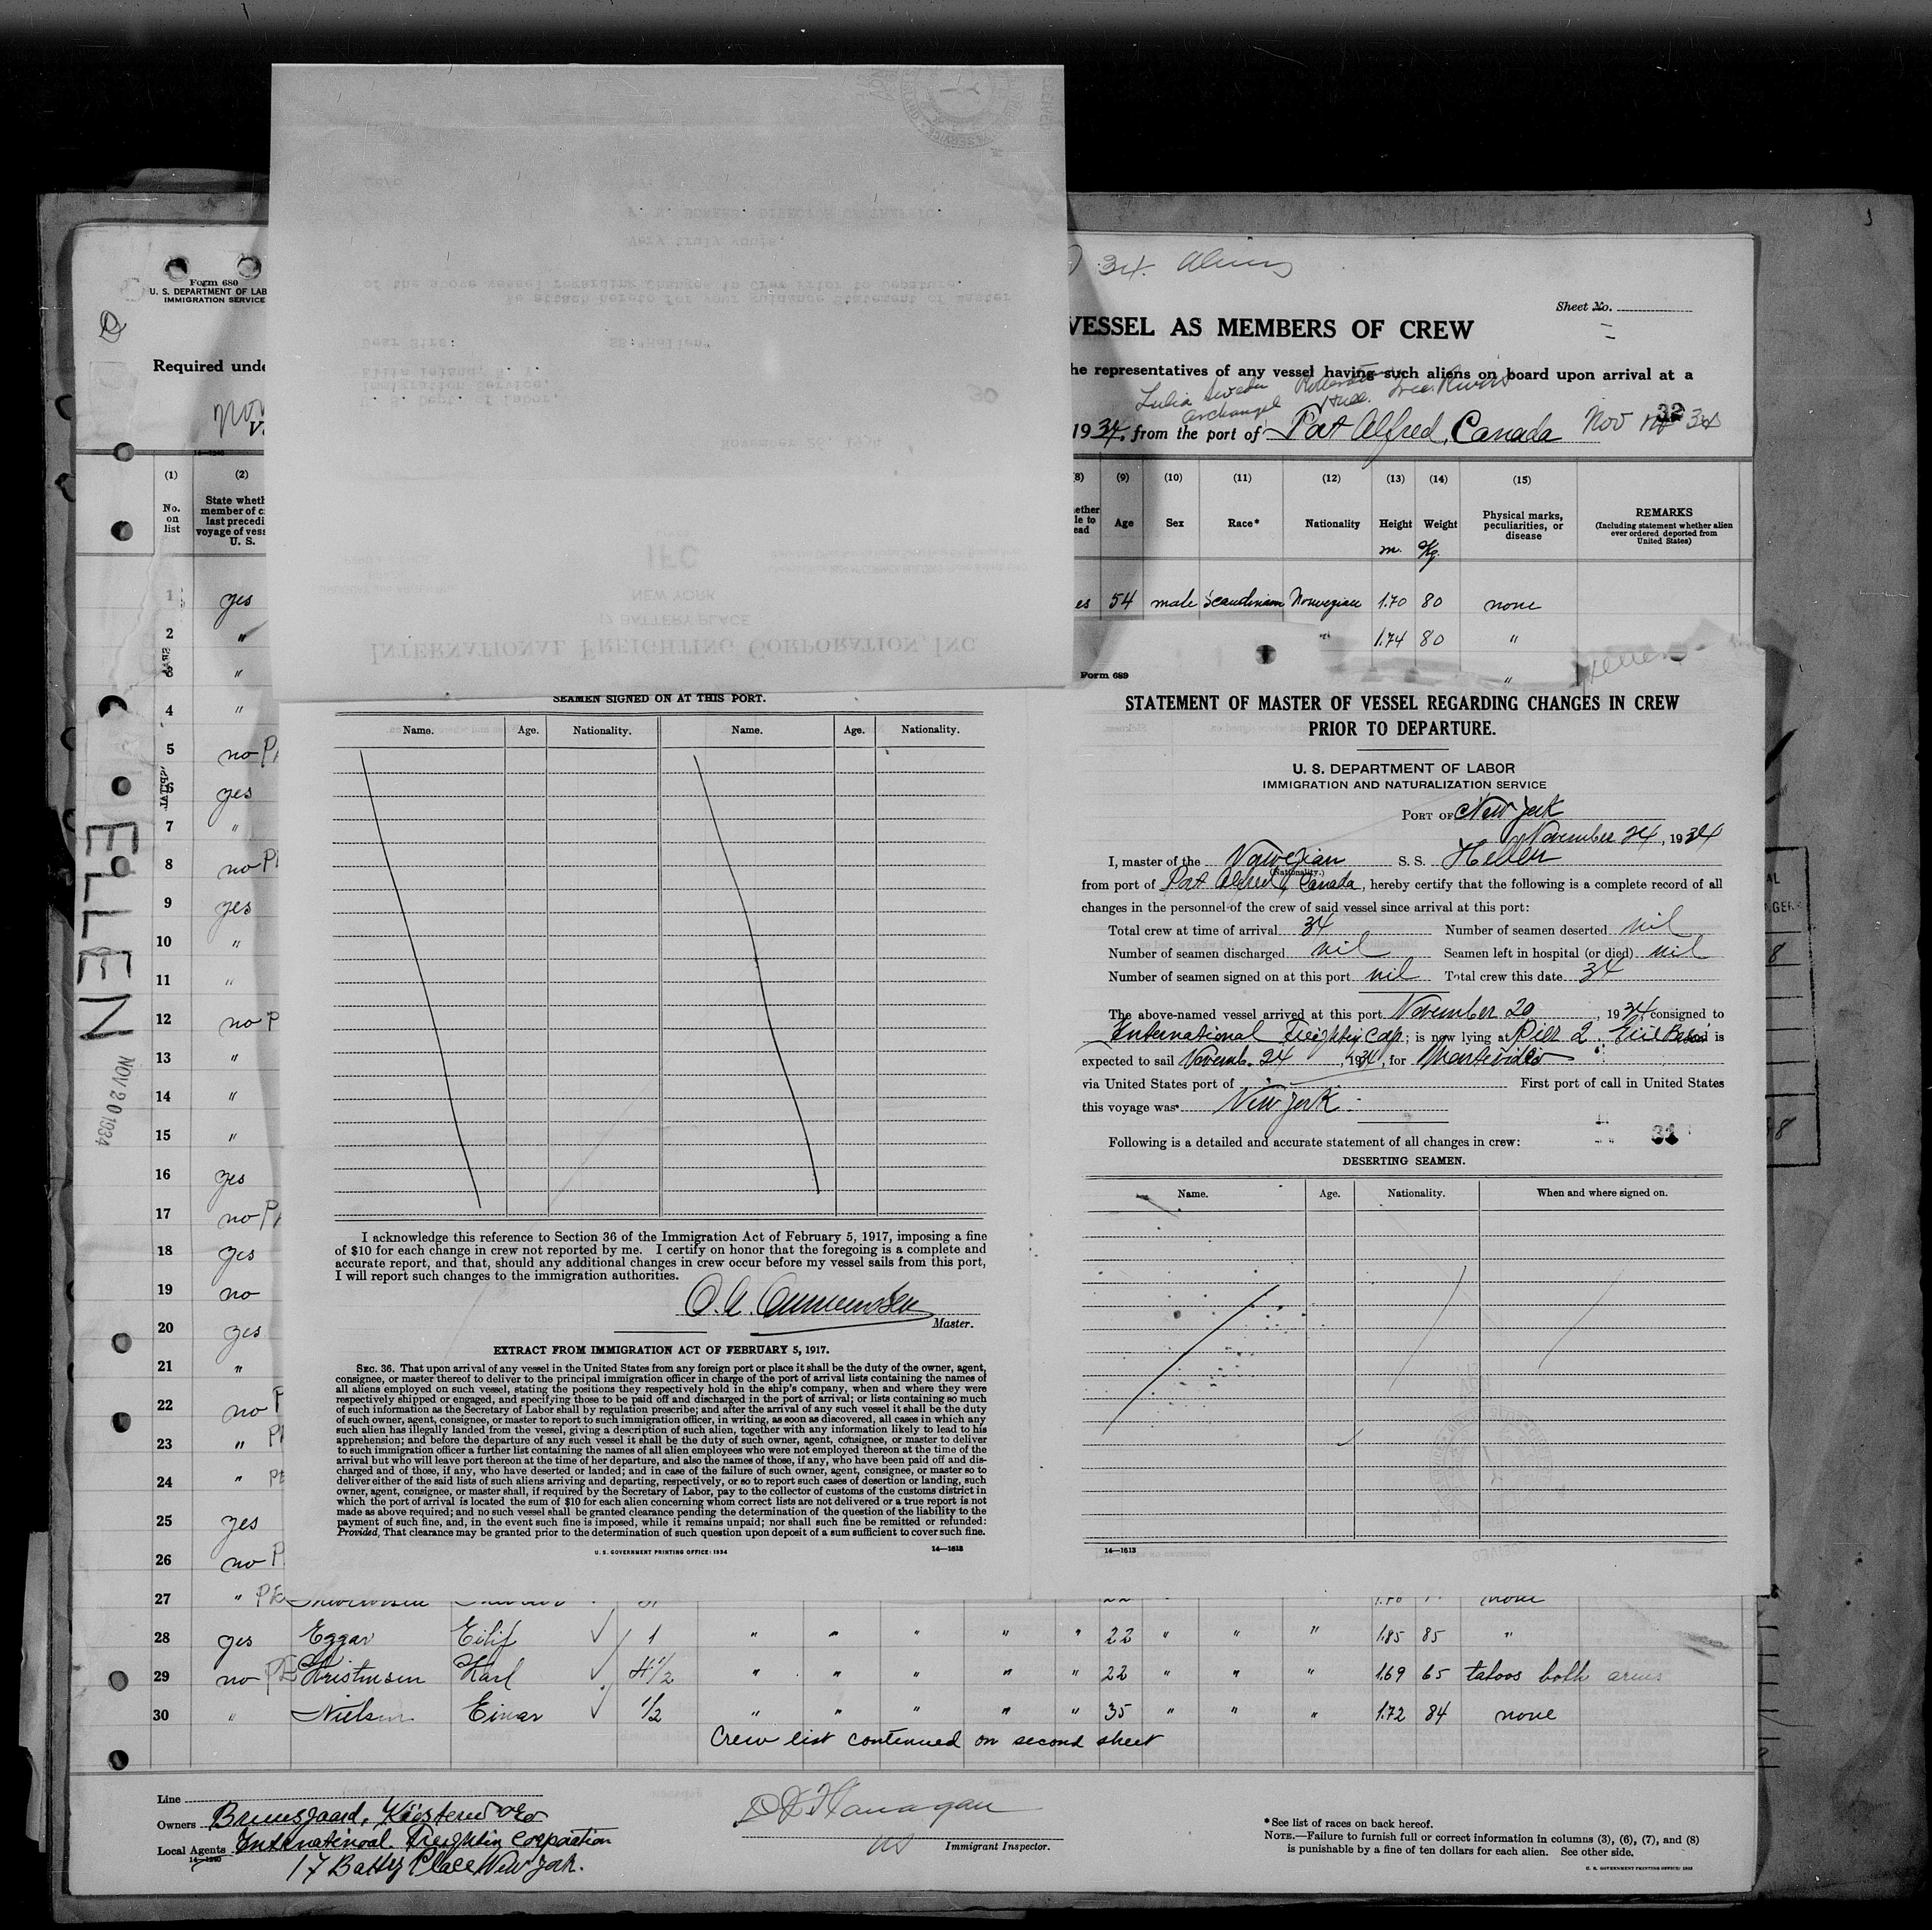 34. Aliens
Form 680
U. S. DEPARTMENT OF LAB
IMMIGRATION SERVICE
Sheet No.
VESSEL AS MEMBERS OF CREW
Required unde
he representatives of any vessel having such aliens on board upon arrival at a
Archangel Hull.
1934, from the port of Port Alfred, Canada Nov 34
32
(1) (2) (8) (9) (10) (11) (12) (13) (14) (15)
No. on list
State wheth
member of c
last precedi
voyage of vess
U. S.
Age Sex Race* Nationality Height Weight
m. Kg.
Physical marks, peculiarities, or disease
REMARKS
(Including statement whether alien ever ordered deported from United States)
1 yes es 54 male Scandinavian Norwegian 1.70 80 none
2 " " 1.74 80 "
3 " "
4 "
5 no
6 yes
7 "
8 no
9 yes
10 "
11 "
12 no P
13 "
14 "
15 "
16 yes
17 no
18 yes
19 no
20 yes
21 "
22 no
23 "
24 "
25 yes
26 no P
27 " none
28 yes Eggar Eilif 1 " " " " " 22 " " " 1.85 85 "
29 no Kristensen Karl 4 1/2 " " " " " 22 " " " 1.69 65 tatoos both arms
30 " Nielsen Einar 1/2 " " " " " 35 " " " 1.72 84 none
Crew list continued on second sheet
HELLEN
NOV 20 1934
Line
Owners Bruusgaard, Kiøsterud & Co
Local Agents International Freightin Corporation
17 Battey Place New York.
14—1240
Immigrant Inspector.
* See list of races on back hereof.
NOTE.—Failure to furnish full or correct information in columns (3), (6), (7), and (8)
is punishable by a fine of ten dollars for each alien. See other side.
U. S. GOVERNMENT PRINTING OFFICE: 1933
INTERNATIONAL FREIGHTING CORPORATION, INC
17 BATTERY PLACE
NEW YORK
IFC
November 26, 1934
30
U. S. Dept. of Labor,
Immigration Service,
Ellis Island, N. Y.
Dear Sirs:
We attach hereto for your guidance Statement of Master
of the above vessel regarding Changes in Crew Prior to Departure.
Very truly yours,
SEAMEN SIGNED ON AT THIS PORT.
Name. Age. Nationality. Name. Age. Nationality.
I acknowledge this reference to Section 36 of the Immigration Act of February 5, 1917, imposing a fine
of $10 for each change in crew not reported by me. I certify on honor that the foregoing is a complete and
accurate report, and that, should any additional changes in crew occur before my vessel sails from this port,
I will report such changes to the immigration authorities.
Master.
EXTRACT FROM IMMIGRATION ACT OF FEBRUARY 5, 1917.
SEC. 36. That upon arrival of any vessel in the United States from any foreign port or place it shall be the duty of the owner, agent,
consignee, or master thereof to deliver to the principal immigration officer in charge of the port of arrival lists containing the names of
all aliens employed on such vessel, stating the positions they respectively hold in the ship's company, when and where they were
respectively shipped or engaged, and specifying those to be paid off and discharged in the port of arrival; or lists containing so much
of such information as the Secretary of Labor shall by regulation prescribe; and after the arrival of any such vessel it shall be the duty
of such owner, agent, consignee, or master to report to such immigration officer, in writing, as soon as discovered, all cases in which any
such alien has illegally landed from the vessel, giving a description of such alien, together with any information likely to lead to his
apprehension; and before the departure of any such vessel it shall be the duty of such owner, agent, consignee, or master to deliver
to such immigration officer a further list containing the names of all alien employees who were not employed thereon at the time of the
arrival but who will leave port thereon at the time of her departure, and also the names of those, if any, who have been paid off and dis-
charged and of those, if any, who have deserted or landed; and in case of the failure of such owner, agent, consignee, or master so to
deliver either of the said lists of such aliens arriving and departing, respectively, or so to report such cases of desertion or landing, such
owner, agent, consignee, or master shall, if required by the Secretary of Labor, pay to the collector of customs of the customs district in
which the port of arrival is located the sum of $10 for each alien concerning whom correct lists are not delivered or a true report is not
made as above required; and no such vessel shall be granted clearance pending the determination of the question of the liability to the
payment of such fine, and, in the event such fine is imposed, while it remains unpaid; nor shall such fine be remitted or refunded:
Provided, That clearance may be granted prior to the determination of such question upon deposit of a sum sufficient to cover such fine.
U. S. GOVERNMENT PRINTING OFFICE: 1934 14—1613
Form 689
STATEMENT OF MASTER OF VESSEL REGARDING CHANGES IN CREW
PRIOR TO DEPARTURE.
U. S. DEPARTMENT OF LABOR
IMMIGRATION AND NATURALIZATION SERVICE
PORT OF New York
November 24, 1934
I, master of the Norwegian S. S. Hellen
(Nationality.)
from port of Port Alfred, Canada, hereby certify that the following is a complete record of all
changes in the personnel of the crew of said vessel since arrival at this port:
Total crew at time of arrival 34 Number of seamen deserted nil
Number of seamen discharged nil Seamen left in hospital (or died) nil
Number of seamen signed on at this port nil Total crew this date 34
The above-named vessel arrived at this port November 20, 1934 consigned to
International Freightin Corp; is now lying at Pier 2. Erie Basin is
expected to sail Novemb. 24, 1934, for Montevideo
via United States port of First port of call in United States
this voyage was New York.
Following is a detailed and accurate statement of all changes in crew:
31
DESERTING SEAMEN.
Name. Age. Nationality. When and where signed on.
14—1613